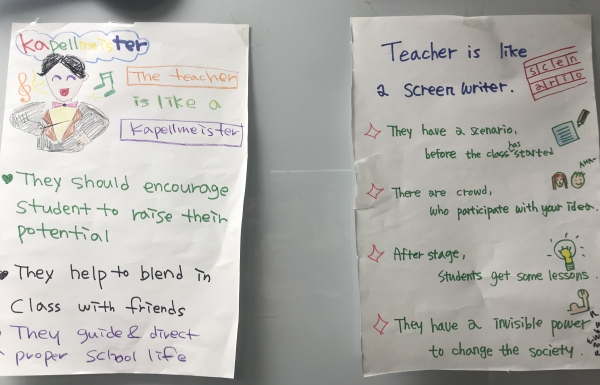 kapellmeister
The teacher
is like a
kapellmeister
They should encourage
student to raise their
potential
They help to blend in
Class with friends
They guide & direct
proper school life
Teacher is like
a screen writer.
scen
ario
They have a scenario,
before the class has started
There are crowd,
who participate with your idea.
AHA~
After stage,
students get some lessons.
They have a invisible power
to change the society.